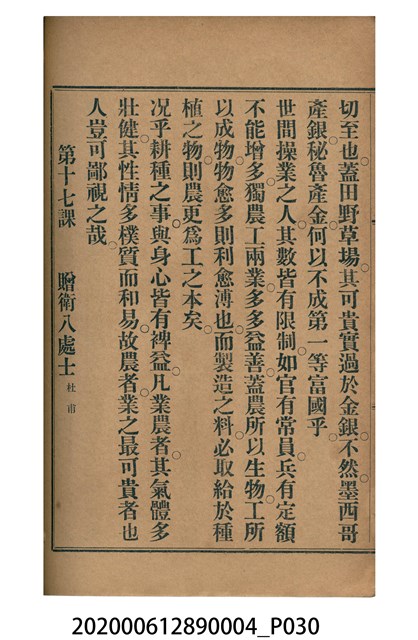 切至也蓋田野草場其可貴實過於金銀不然墨西哥
產銀秘魯產金何以不成第一等富國乎
世間操業之人其數皆有限制如官有常員兵有定額
不能增多獨農工兩業多多益善蓋農所以生物工所
以成物物愈多則利愈溥也而製造之料必取給於種
植之物則農更爲工之本矣
况乎耕種之事與身心皆有裨益凡業農者其氣體多
壯健其性情多樸質而和易故農者業之最可貴者也
人豈可鄙視之哉
第十七課 贈衛八處士 杜甫
202000612890004_P030